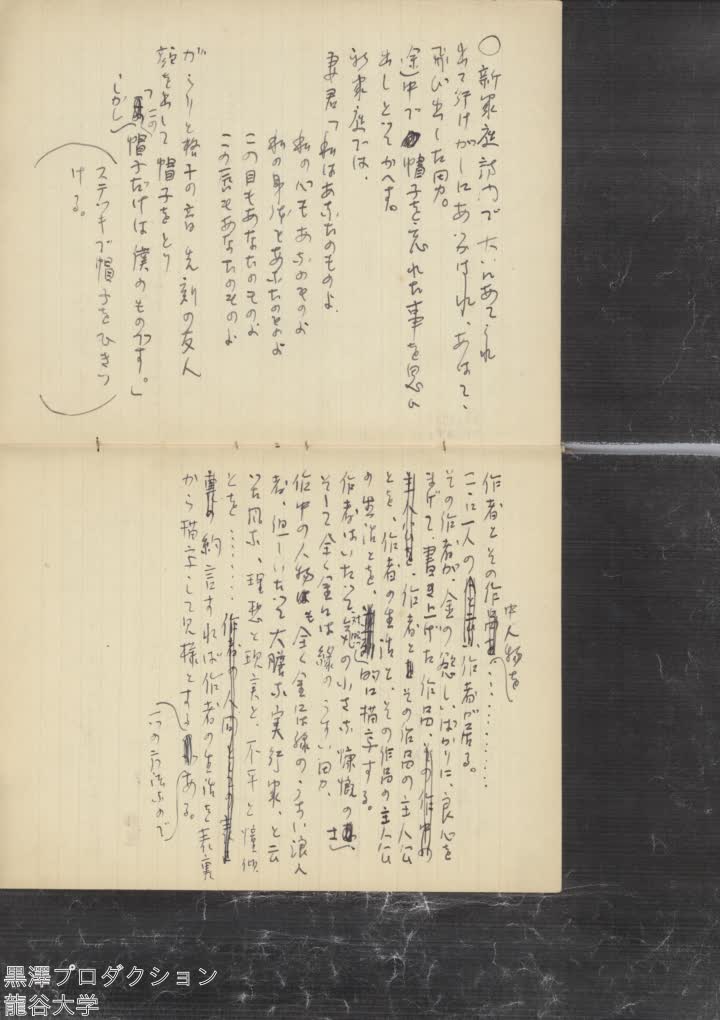 ○新家庭訪問で大いにあてられ
出て行けがしにあつかはれ、あはて、
飛び出した男。
途中で帽子を忘れた事を思ひ
出しとつてかへす。
新家庭では、
妻君「私はあなたのものよ、
私の心もあなたのものよ
私の身体もあなたのものよ
この目もあなたのものよ
この唇もあなたのものよ
がらりと格子の音 先刻の友人
顔を出して帽子をとり
「しかしこの帽子だけは僕のものです。」
(ステツキで帽子をひきつ
ける。)
作者とその作品中の人物を…………
ここに一人の作者が居る。
その作者が、金の欲しいばかりに、良心を
まげて、書き上げた作品、
作者とその作品の主人公
とを、作者の生活と、その作品の主人公
の生活とを、対照的に描写する。
作者はいたつて気の小さな慷慨の士、
そして全く金には縁のうすい男、
作中の人物も全く金には縁のうすい浪人
者、但しいたつて大膽な実行家、と云
つた風な、理想と現実と、不平と憧憬
とを………
約言すれば作者の生活を表裏
から描写して見様とする
一つの方法なので
ある。
黒澤プロダクション
龍谷大学